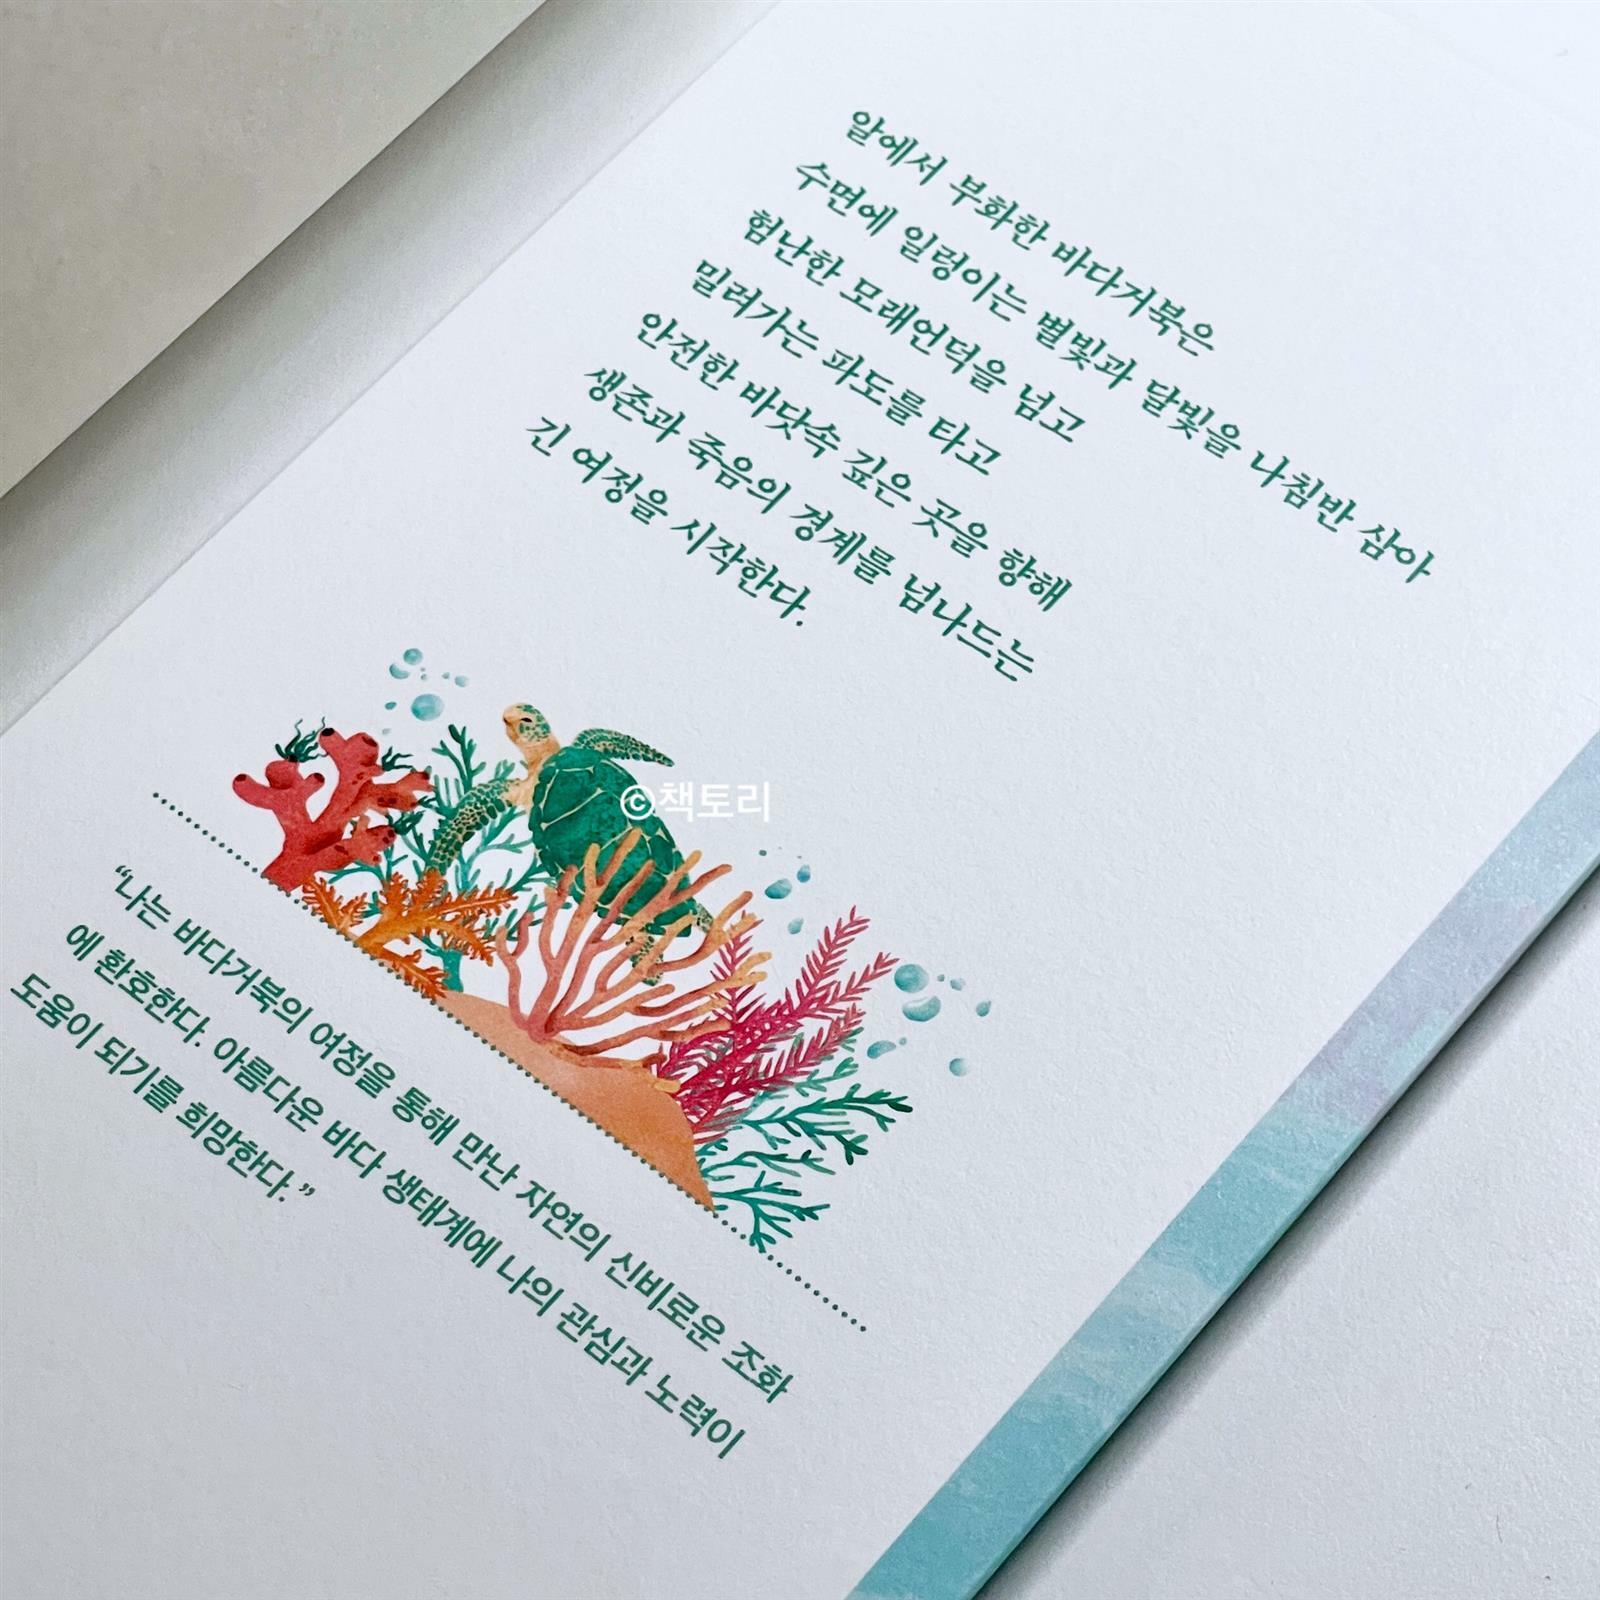 알에서 부화한 바다거북은
수면에 일렁이는 별빛과 달빛을 나침반 삼아
험난한 모래언덕을 넘고
밀려가는 파도를 타고
안전한 바닷속 깊은 곳을 향해
생존과 죽음의 경계를 넘나드는
긴 여정을 시작한다.
©책토리
“나는 바다거북의 여정을 통해 만난 자연의 신비로운 조화
에 환호한다. 아름다운 바다 생태계에 나의 관심과 노력이
도움이 되기를 희망한다.”